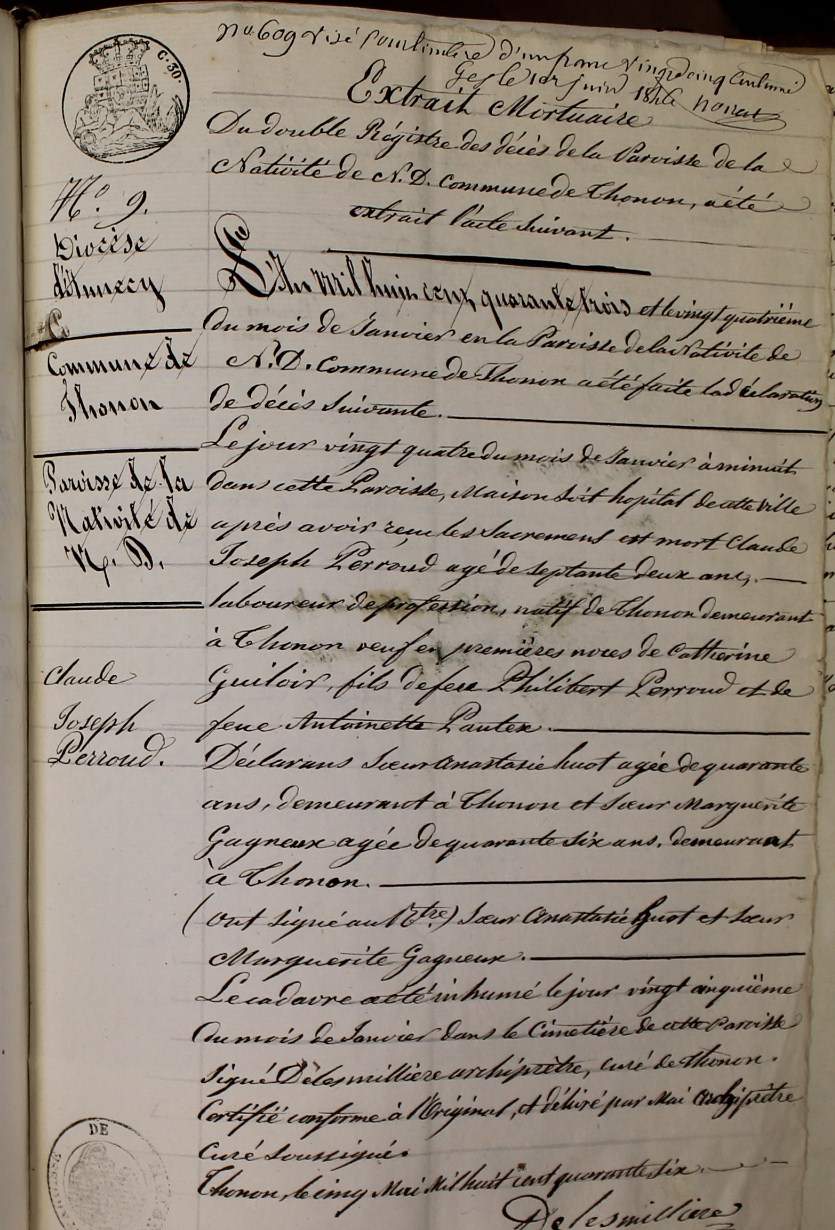 No. 609 visé pour timbre d'un franc vingt cinq centimes
Gex le 1er juin 1846
C. 30.
Extrait Mortuaire
Du double Régistre des décès de la Paroisse de la
Nativité de N. D. Commune de Thonon, a été
extrait l'acte suivant.
No. 9.
Diocèse
d'Annecy
Commune de
Thonon
Paroisse de la
Nativité de
N. D.
Claude
Joseph
Perroud.
L'An Mil huit cent quarante trois et le vingt quatrième
du mois de Janvier en la Paroisse de la Nativité de
N. D. Commune de Thonon a été faite la déclaration
de décès suivante.
Le jour vingt quatre du mois de Janvier à minuit
dans cette Paroisse, Maison soit hopital de cette ville
après avoir reçu les Sacremens est mort Claude
Joseph Perroud agé de septante deux ans,
laboureur de profession, natif de Thonon demeurant
à Thonon veuf en premières noces de Catherine
Guiloir, fils de feu Philibert Perroud et de
feue Antoinette Pautex.
Déclarans Sœur Anastasie huot agée de quarante
ans, demeurant à Thonon et Sœur Marguerite
Gagneux agée de quarante six ans, demeurant
à Thonon.
(ont signé au Rtre.) Sœur Anastasie Huot et Sœur
Marguerite Gagneux.
Le cadavre a été inhumé le jour vingt cinquième
du mois de Janvier dans le Cimetière de cette Paroisse
Signé Delesmilliere archiprêtre, curé de Thonon.
Certifié conforme à l'Original, et délivré par Moi Archiprêtre
Curé soussigné.
Thonon, le cinq Mai Mil huit cent quarante six
Delesmilliere
DE